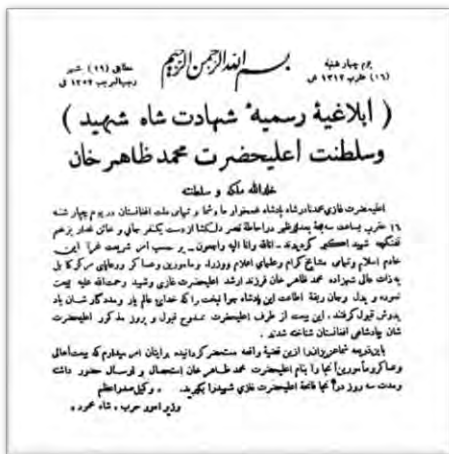 یوم چهار شنبه
(۱۶) عقرب ۱۳۱۲ ش
بسم الله الرحمن الرحیم
مطابق (۱۹) شهر
رجب المرجب ۱۳۵۲ ق
( ابلاغیهٔ رسمیهٔ شهادت شاه شهید )
وسلطنت اعلیحضرت محمد ظاهر خان
خلدالله ملکه و سلطنته
اعلیحضرت غازی محمد نادر شاه پادشاه غمخوار ما وشما و تمامی ملت افغانستان در یوم چهار شنبه
۱۶ عقرب بساعت سه بجهٔ بعد از ظهر در احاطهٔ قصر دلکشا از دست یکنفر جانی و خائن غدار بزخم
تفنگچه شهید گردیدند ـ انالله وانا الیه راجعون ـ بر حسب امر شریعت غرا این
خادم اسلام وتمامی مشایخ کرام وعلمای اعلام ووزرا و مأمورین وعساکر ورعایای مرکز کابل
به ذات عالی شهزاده محمد ظاهر خان فرزند ارشد اعلیحضرت غازی وشهید رحمت الله علیه بیعت
نموده و بدل وجان ربقهٔ اطاعت این پادشاه جوانبخت را که خدایش عالم یار ومددگار شان باد
بدوش قبول کردند . این بیعت از طرف اعلیحضرت ممدوح قبول و بروز مذکور اعلیحضرت
شان بپادشاهی افغانستان شناخته شدند .
باین ذریعه شما عزیزان را ازین قضیهٔ واقعه مستحضر گردانیده برایتان امر میدارم که بیعت اهالی
وعساکر ومأمورین آنجا را بنام اعلیحضرت محمد ظاهر خان استحصال و ارسال حضور داشته
ومدت سه روز در آنجا فاتحهٔ اعلیحضرت غازی شهید را بگیرید . وکیل صدراعظم
وزیر امور حرب . شاه محمود .